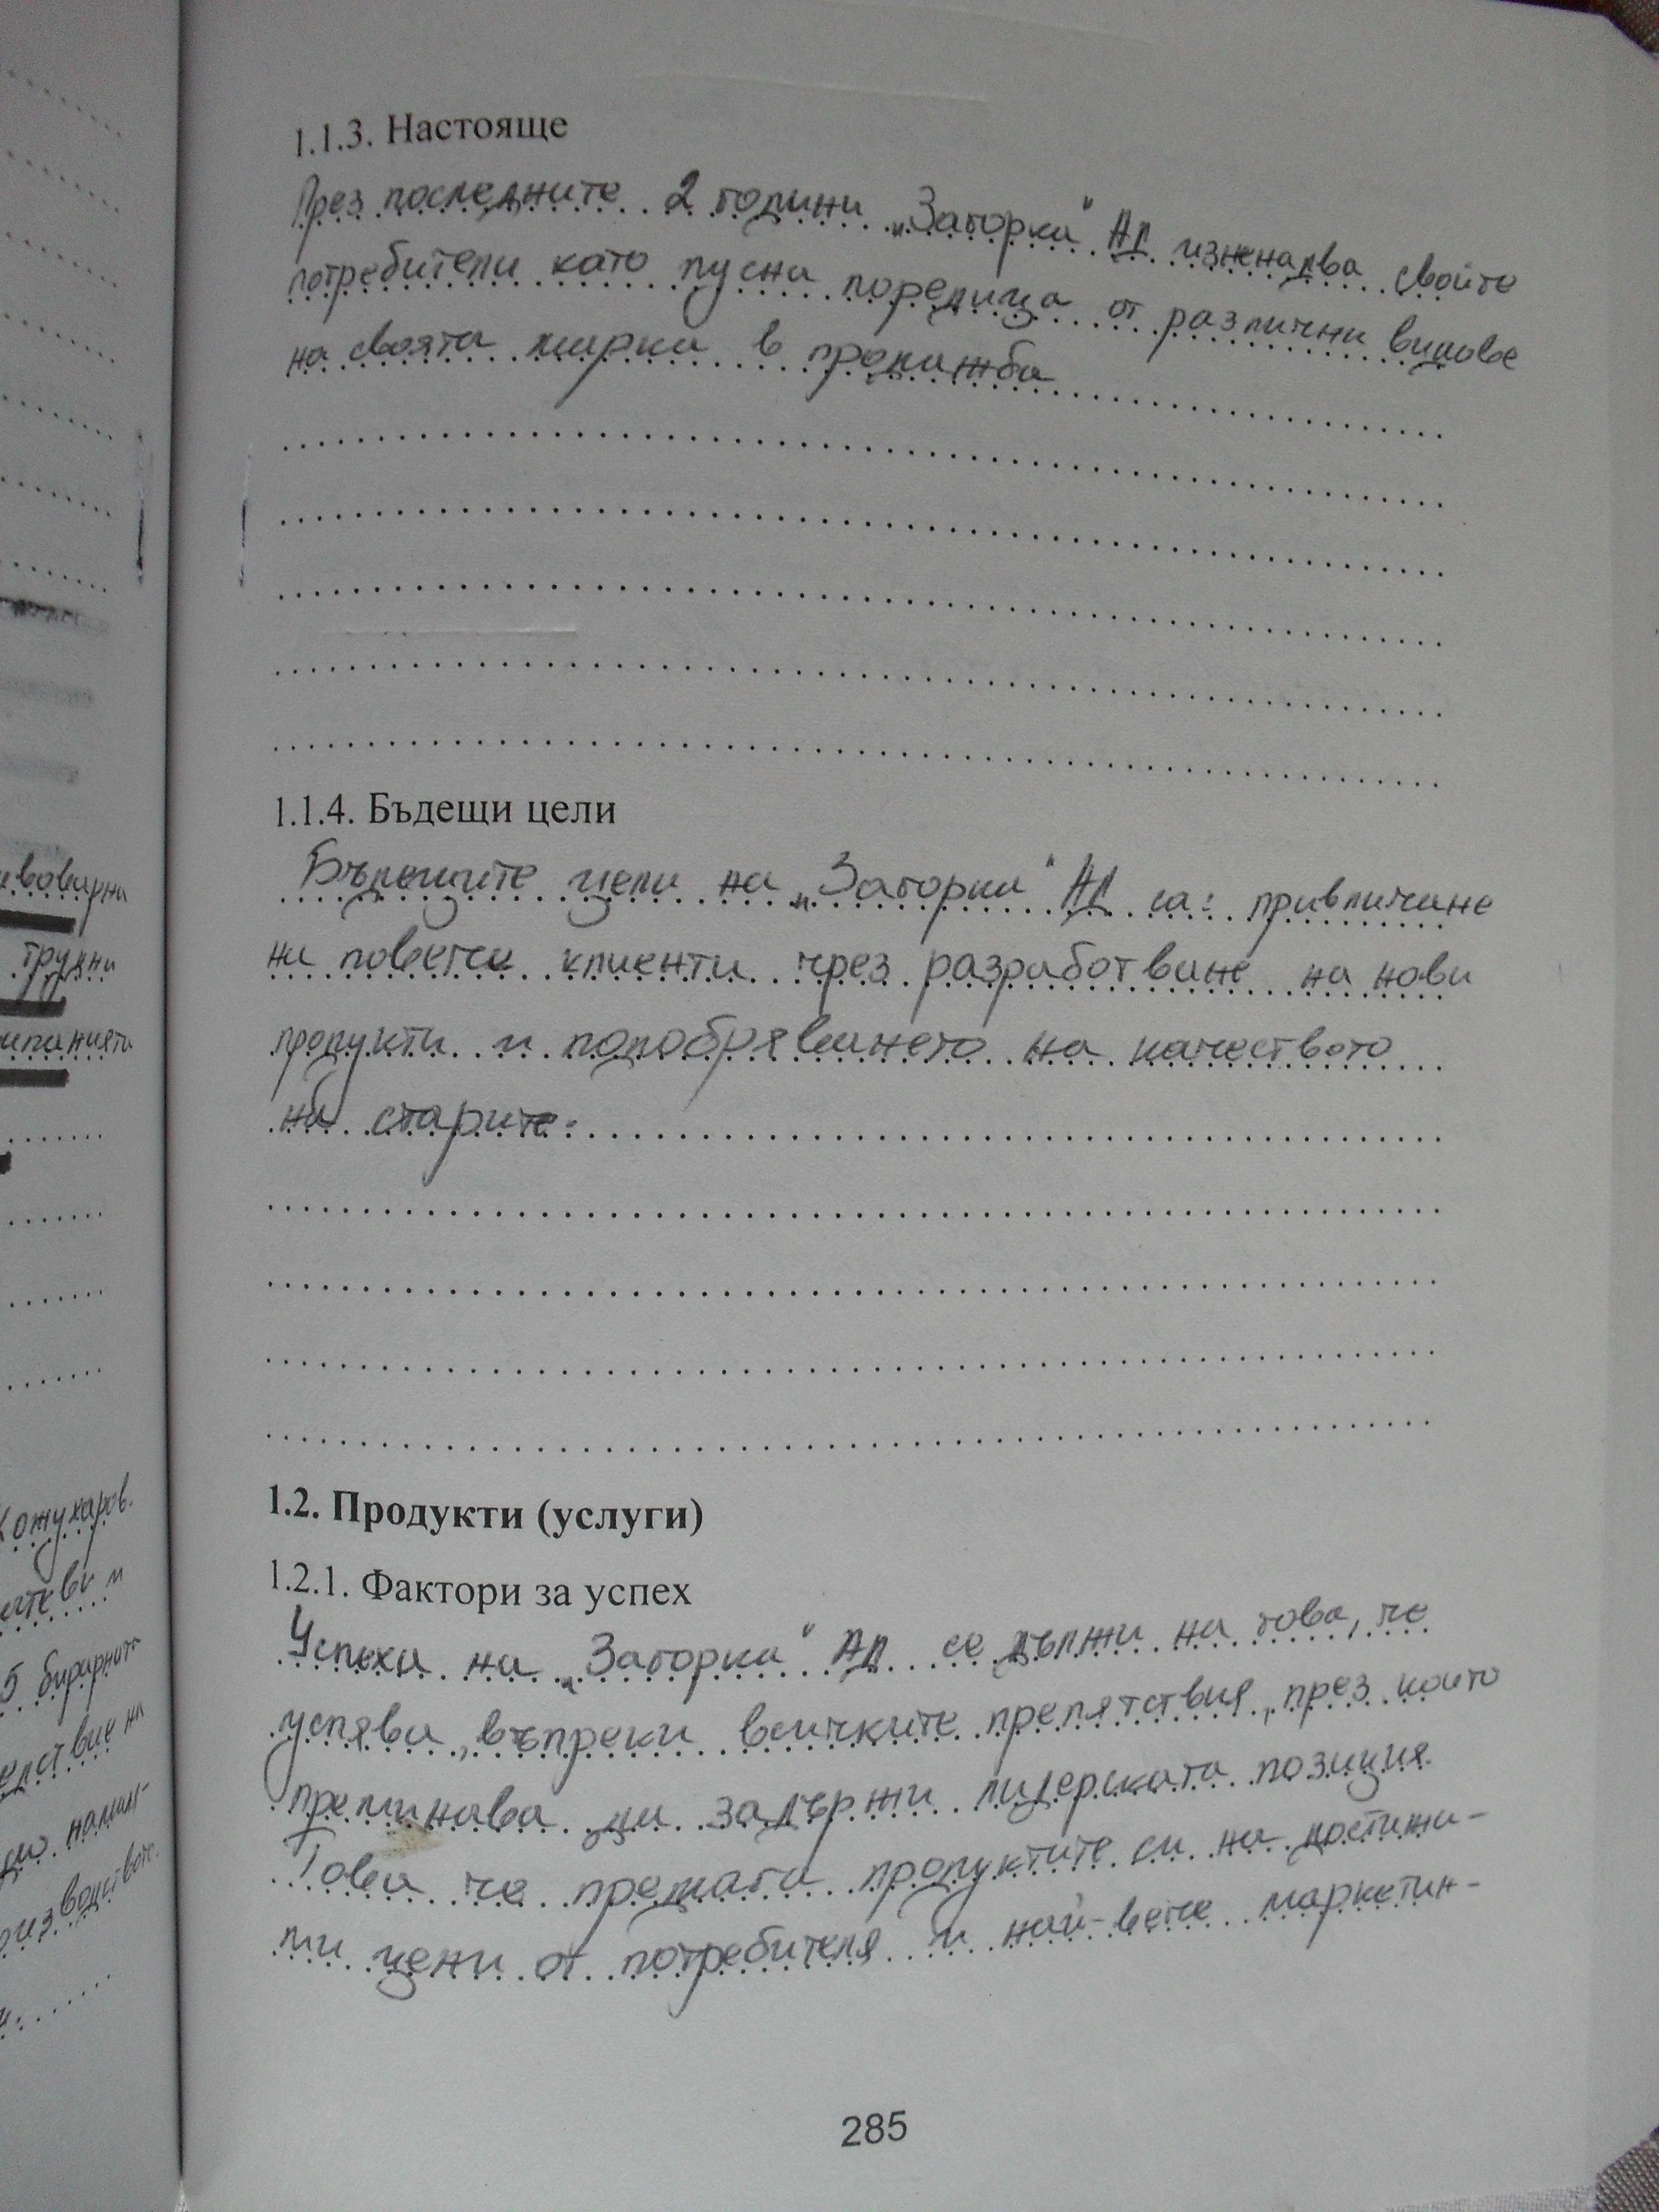 1.1.3. Настояще
През последните 2 години „Загорка" АД изненадва свойте
потребители като пусна поредица от различни видове
на своята марка в продажба
1.1.4. Бъдещи цели
Бъдещите цели на „Загорка" АД са: привличане
на повече клиенти чрез разработване на нови
продукти и подобряването на качеството
на старите.
1.2. Продукти (услуги)
1.2.1. Фактори за успех
Успеха на „Загорка" АД се дължи на това, че
успява, въпреки всичките препятствия, през които
преминава да задържи лидерската позиция.
Това че предлага продуктите си на достижи-
ми цени от потребителя и най-вече маркетин-
285
трудни
Кожухаров.